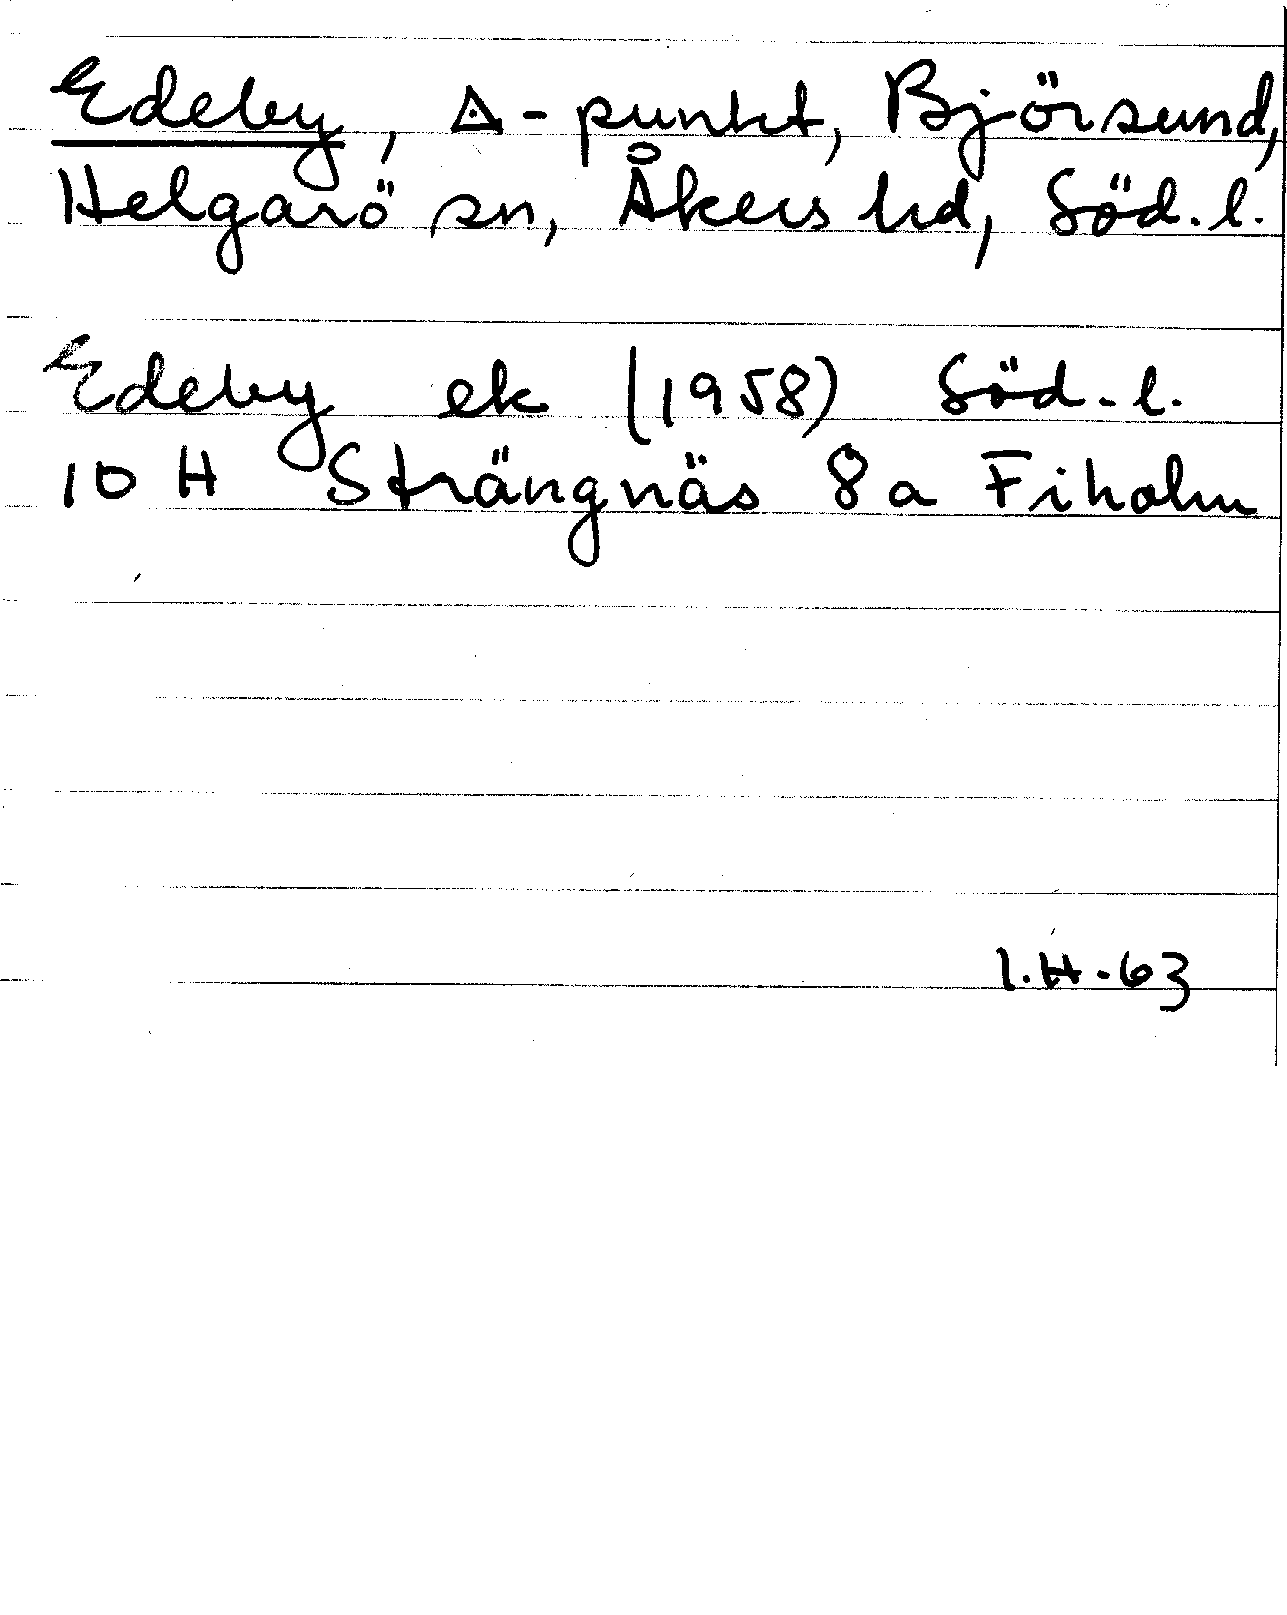 Edeby, △-punkt, Björsund,
Helgarö sn, Åkers hd, Söd.l.
Edeby ek (1958) Söd.l.
10 H Strängnäs 8 a Fiholm
I.H-63